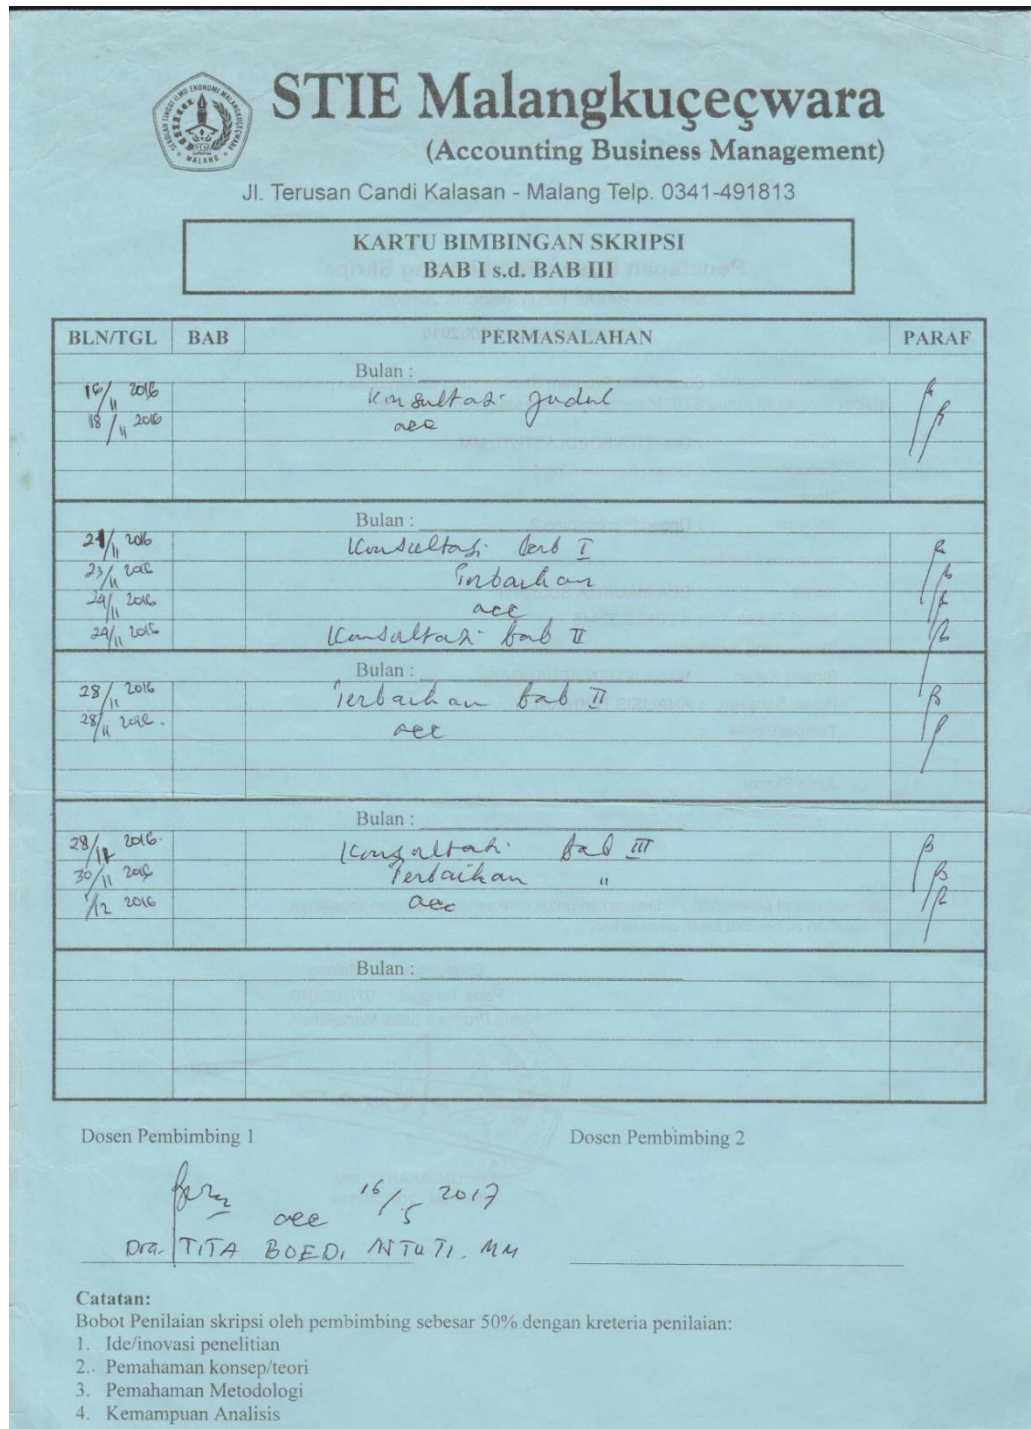 STIE Malangkuçeçwara
(Accounting Business Management)
SEKOLAH TINGGI ILMU EKONOMI MALANGKUCECWARA
MALANG
Jl. Terusan Candi Kalasan - Malang Telp. 0341-491813
KARTU BIMBINGAN SKRIPSI
BAB I s.d. BAB III
BLN/TGL BAB PERMASALAHAN PARAF
Bulan :
16/11 2016 Konsultasi Judul
18/11 2016 acc
Bulan :
21/11 2016 Konsultasi bab I
23/11 2016 Perbaikan
24/11 2016 acc
24/11 2016 Konsultasi bab II
Bulan :
28/11 2016 Perbaikan bab II
28/11 2016. acc
Bulan :
28/11 2016. Konsultasi bab III
30/11 2016 Perbaikan "
1/12 2016 acc
Bulan :
Dosen Pembimbing 1 Dosen Pembimbing 2
acc 16/5 2017
Dra. TITA BOEDI ASTUTI. MM
Catatan:
Bobot Penilaian skripsi oleh pembimbing sebesar 50% dengan kreteria penilaian:
1. Ide/inovasi penelitian
2.. Pemahaman konsep/teori
3. Pemahaman Metodologi
4. Kemampuan Analisis